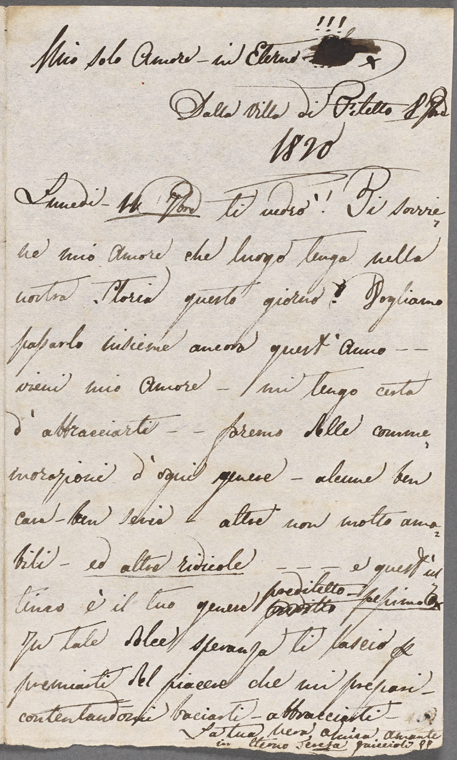 Mio solo Amore - in Eterno !!! x
Dalla Villa di Filetto 8 7bre
1820
Lunedi - 11 7bre ti vedrò! Ti sovvie-
ne mio Amore che luogo tenga nella
nostra Storia questo giorno? Vogliamo
passarlo insieme ancora quest'anno --
vieni mio Amore - mi tengo certa
d'abbracciarti -- faremo delle comme-
morazioni d'ogni genere - alcune ben
care - ben serie - altre non molto ama-
bili - ed altre ridicole ---- e quest'ul
timo è il tuo genere prediletto pessimo x
In tale dolce speranza ti lascio
premiarti del piacere che mi prepari -
contentandomi baciarti - abbracciarti -
La tua vera amante
in Eterno Teresa Guiccioli